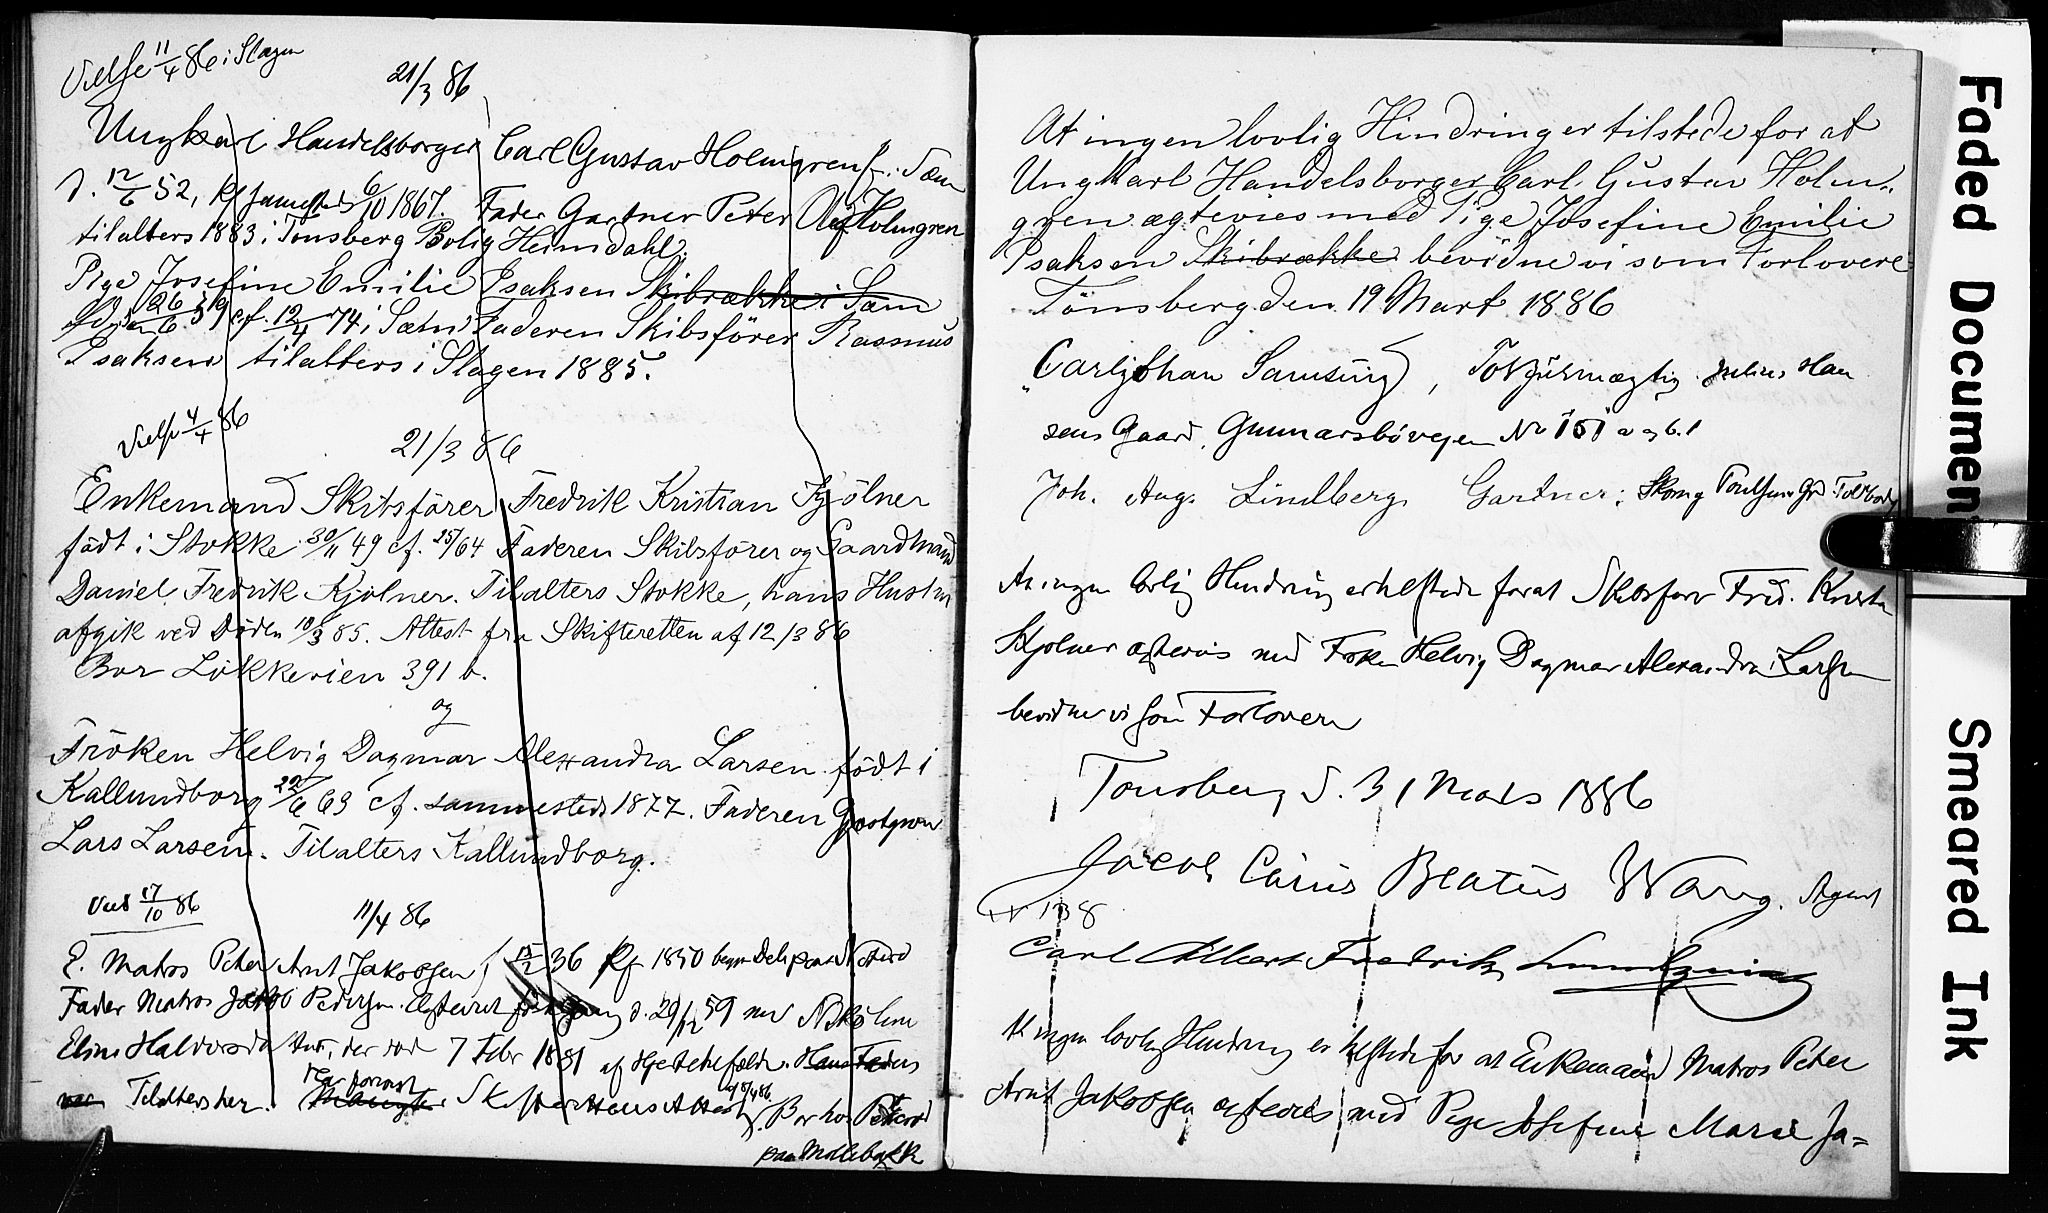 Vielse 11/4 86 i Slagen
21/3 86
Ungkarl Handelsborger Carl Gustav Holmgren f. i Sæm
d. 12/6 52, Kf sammesteds 6/10 1867. Fader Gartner Peter Holmgren
tilalters 1883 i Tönsberg Bolig Heimdahl.
Pige Josefine Emilie Isaksen Skibrække i Sæm
26/6 59 cf. 12/4 74 i Sæm Faderen Skibsförer Rasmus
Isaksen tilalters i Slagen 1885.
Vielse 4/4 86
21/3 86
Enkemand Skibsförer Fredrik Kristian Kjölner
födt i Stokke 30/11 49 cf. 25/ 64 Faderen Skibsförer og Gaardmand
Daniel Fredrik Kjölner. Tilalters Stokke, hans Hustru
afgik ved Döden 10/3 85. Attest fra Skifteretten af 12/3 86
Bor Lökkeveien 391 b.
og
Fröken Helvig Dagmar Alexandra Larsen födt i
Kallundborg 22/6 63 cf. sammesteds 1877. Faderen
Lars Larsen. Tilalters Kallundborg.
Viet 17/10 86
11/4 86
E. Matros Peter Arnt Jakobsen f 15/2 36 Kf 1850
Fader Matros Jakob Pedersen. Egteviet d. 29/12 59 med
Eline Halvorsdatter, der död 7 Febr 1881 af Hans Faders
var Tilalters her. har forevist Skifterettens Attest Bor hos
paa Möllebakk
At ingen lovlig Hindring er tilstede for at
Ungkarl Handelsborger Carl Gustav Holm-
gren ægtevies med Pige Josefine Emilie
Isaksen Skibrække bevidne vi som Forlovere
Tönsberg den 19 Mart 1886
Carl Johan Samsing, Toldfuldmægtig Julius Han
sens Gaard, Gunnarsbövejen No 151 a og b.1
Joh. Aug. Lindberg Gartner; Skomg Poulsens Grd Toldbodg
At ingen lovlig Hindring er tilstede for at Skibsförer Fred. Kristn
Kjolner ægtevies med Frøken Helvig Dagmar Alexandra Larsen
bevidner vi som Forlovere
Tonsberg d. 31 Mars 1886
Jacob Carius Beatus Wang. Agent
N 138
Carl Albert Fredrik
At ingen lovlig Hindring er tilstede for at Enkemand Matros Peter
Arnt Jakobsen ægtevies med Pige Josefine Marie Ja=
Faded Document
Smeared Ink